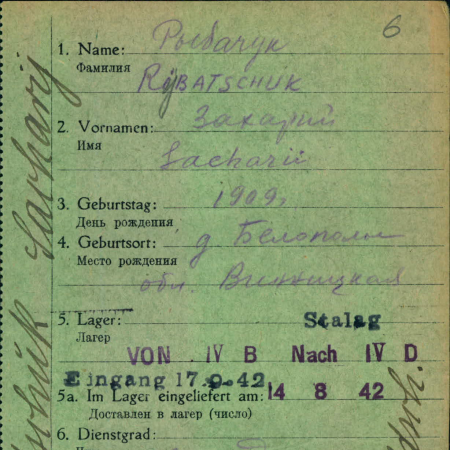 6
1. Name: Рыбачук
Фамилия
RÿBATSCHUK
2. Vornamen: Захарий
Имя
Sacharii
3. Geburtstag: 1909г
День рождения
4. Geburtsort: д Белополье
Место рождения
обл. Винницкая
5. Lager: Stalag
Лагер
VON IV B Nach IV D
Eingang 17.9.42
5a. Im Lager eingeliefert am: 14 8 42
Доставлен в лагер (число)
6. Dienstgrad:
Sacharij